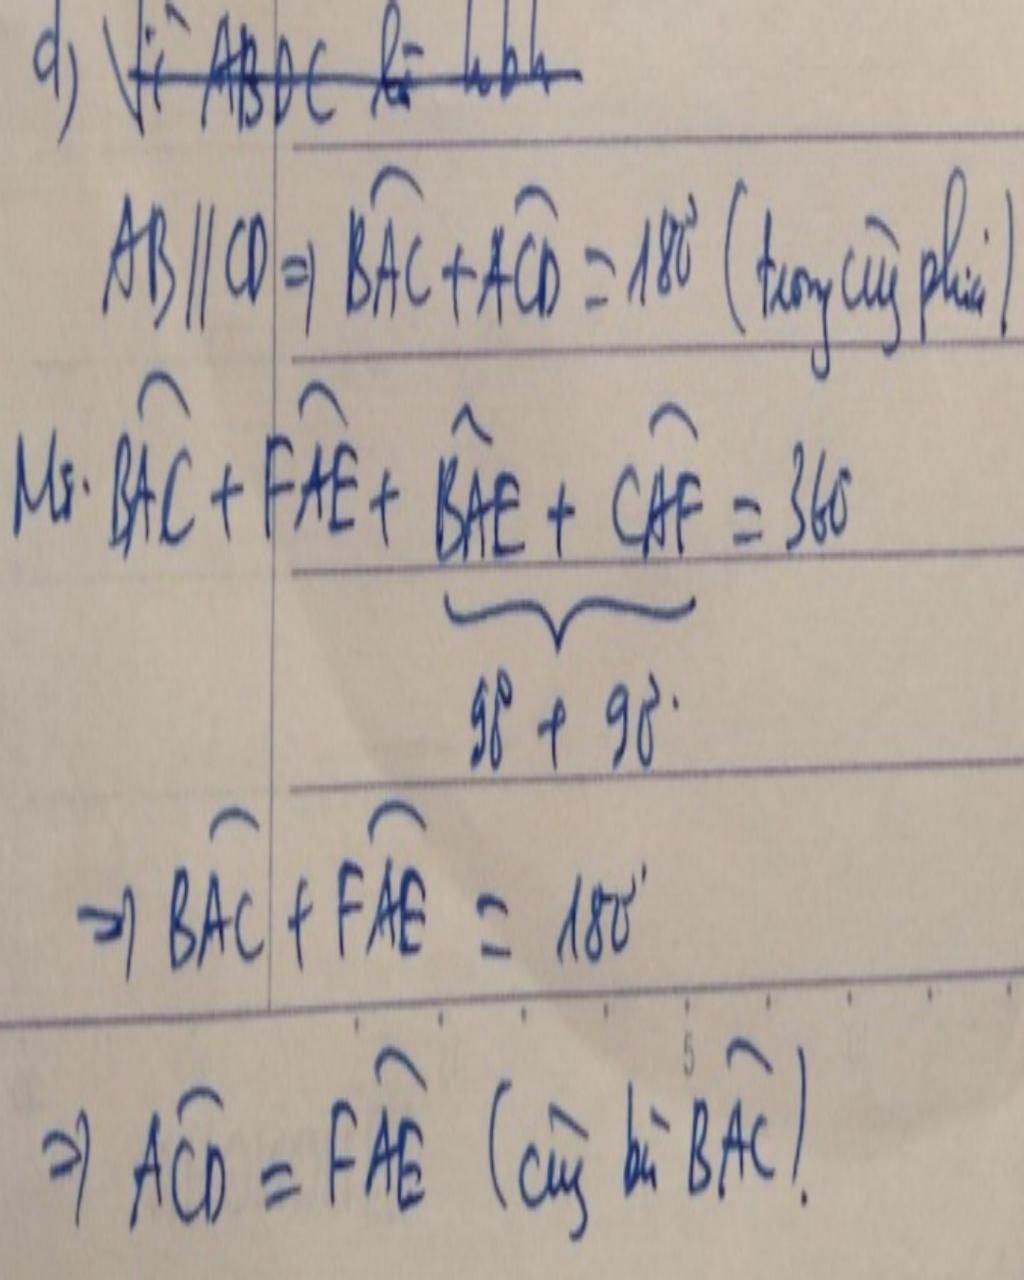 d) Vì ABDC là hbh
AB // CD ⇒ BAC + ACD = 180° (trong cùng phía)
Mà BAC + FAE + BAE + CAF = 360
90° + 90°
⇒ BAC + FAE = 180°
5
⇒ ACD = FAE (cùng bù BAC).